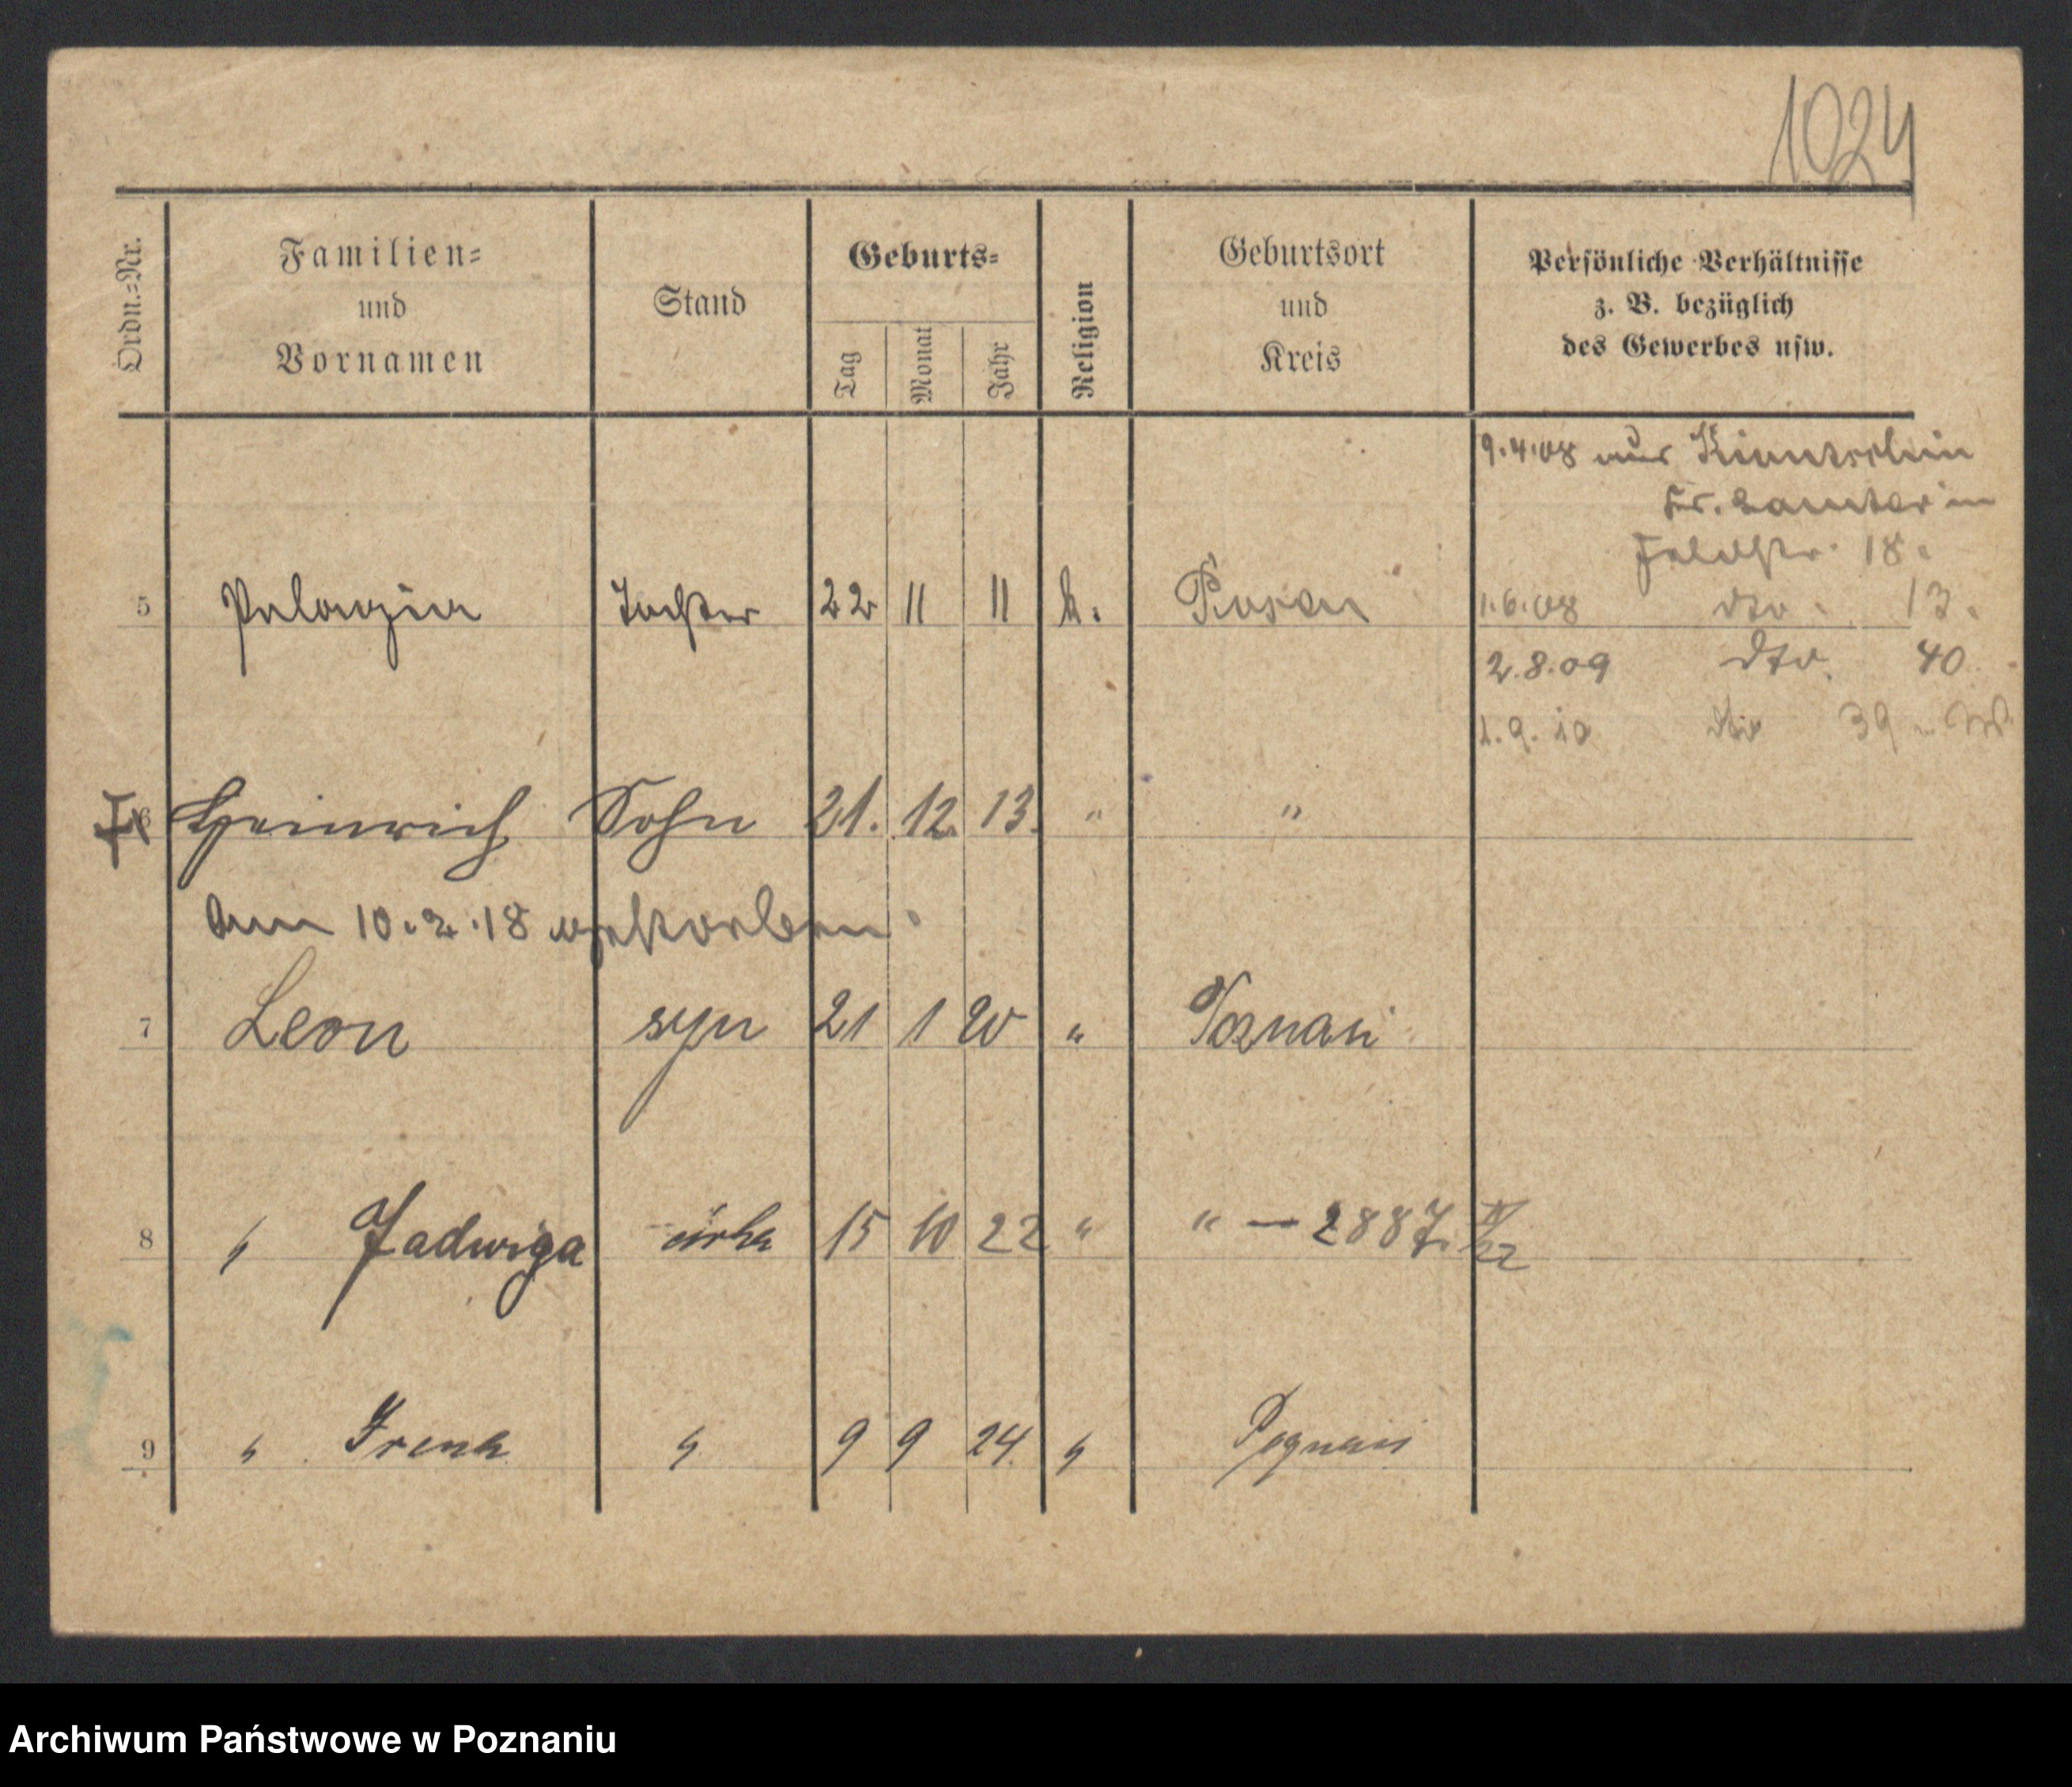 1024
Ordn.-Nr.
Familien-
und
Vornamen
Stand
Geburts-
Tag
Monat
Jahr
Religion
Geburtsort
und
Kreis
Persönliche Verhältnisse
z. B. bezüglich
des Gewerbes usw.
9.4.08 aus
Kr. Samter in
Feldstr. 18.
5 Pelagia Tochter 22 11 11 k. Posen 1.6.08 dto. 13.
2.8.09 dto. 40.
1.9.10 dto 39
6 Heinrich Sohn 21. 12. 13. " "
Am 10.2.18 verstorben.
7 Leon syn 21 1 20 " Poznań
8 " Jadwiga córka 15 10 22 " " — 2887. II/22
9 " Irena " 9 9 24. " Poznań
Archiwum Państwowe w Poznaniu